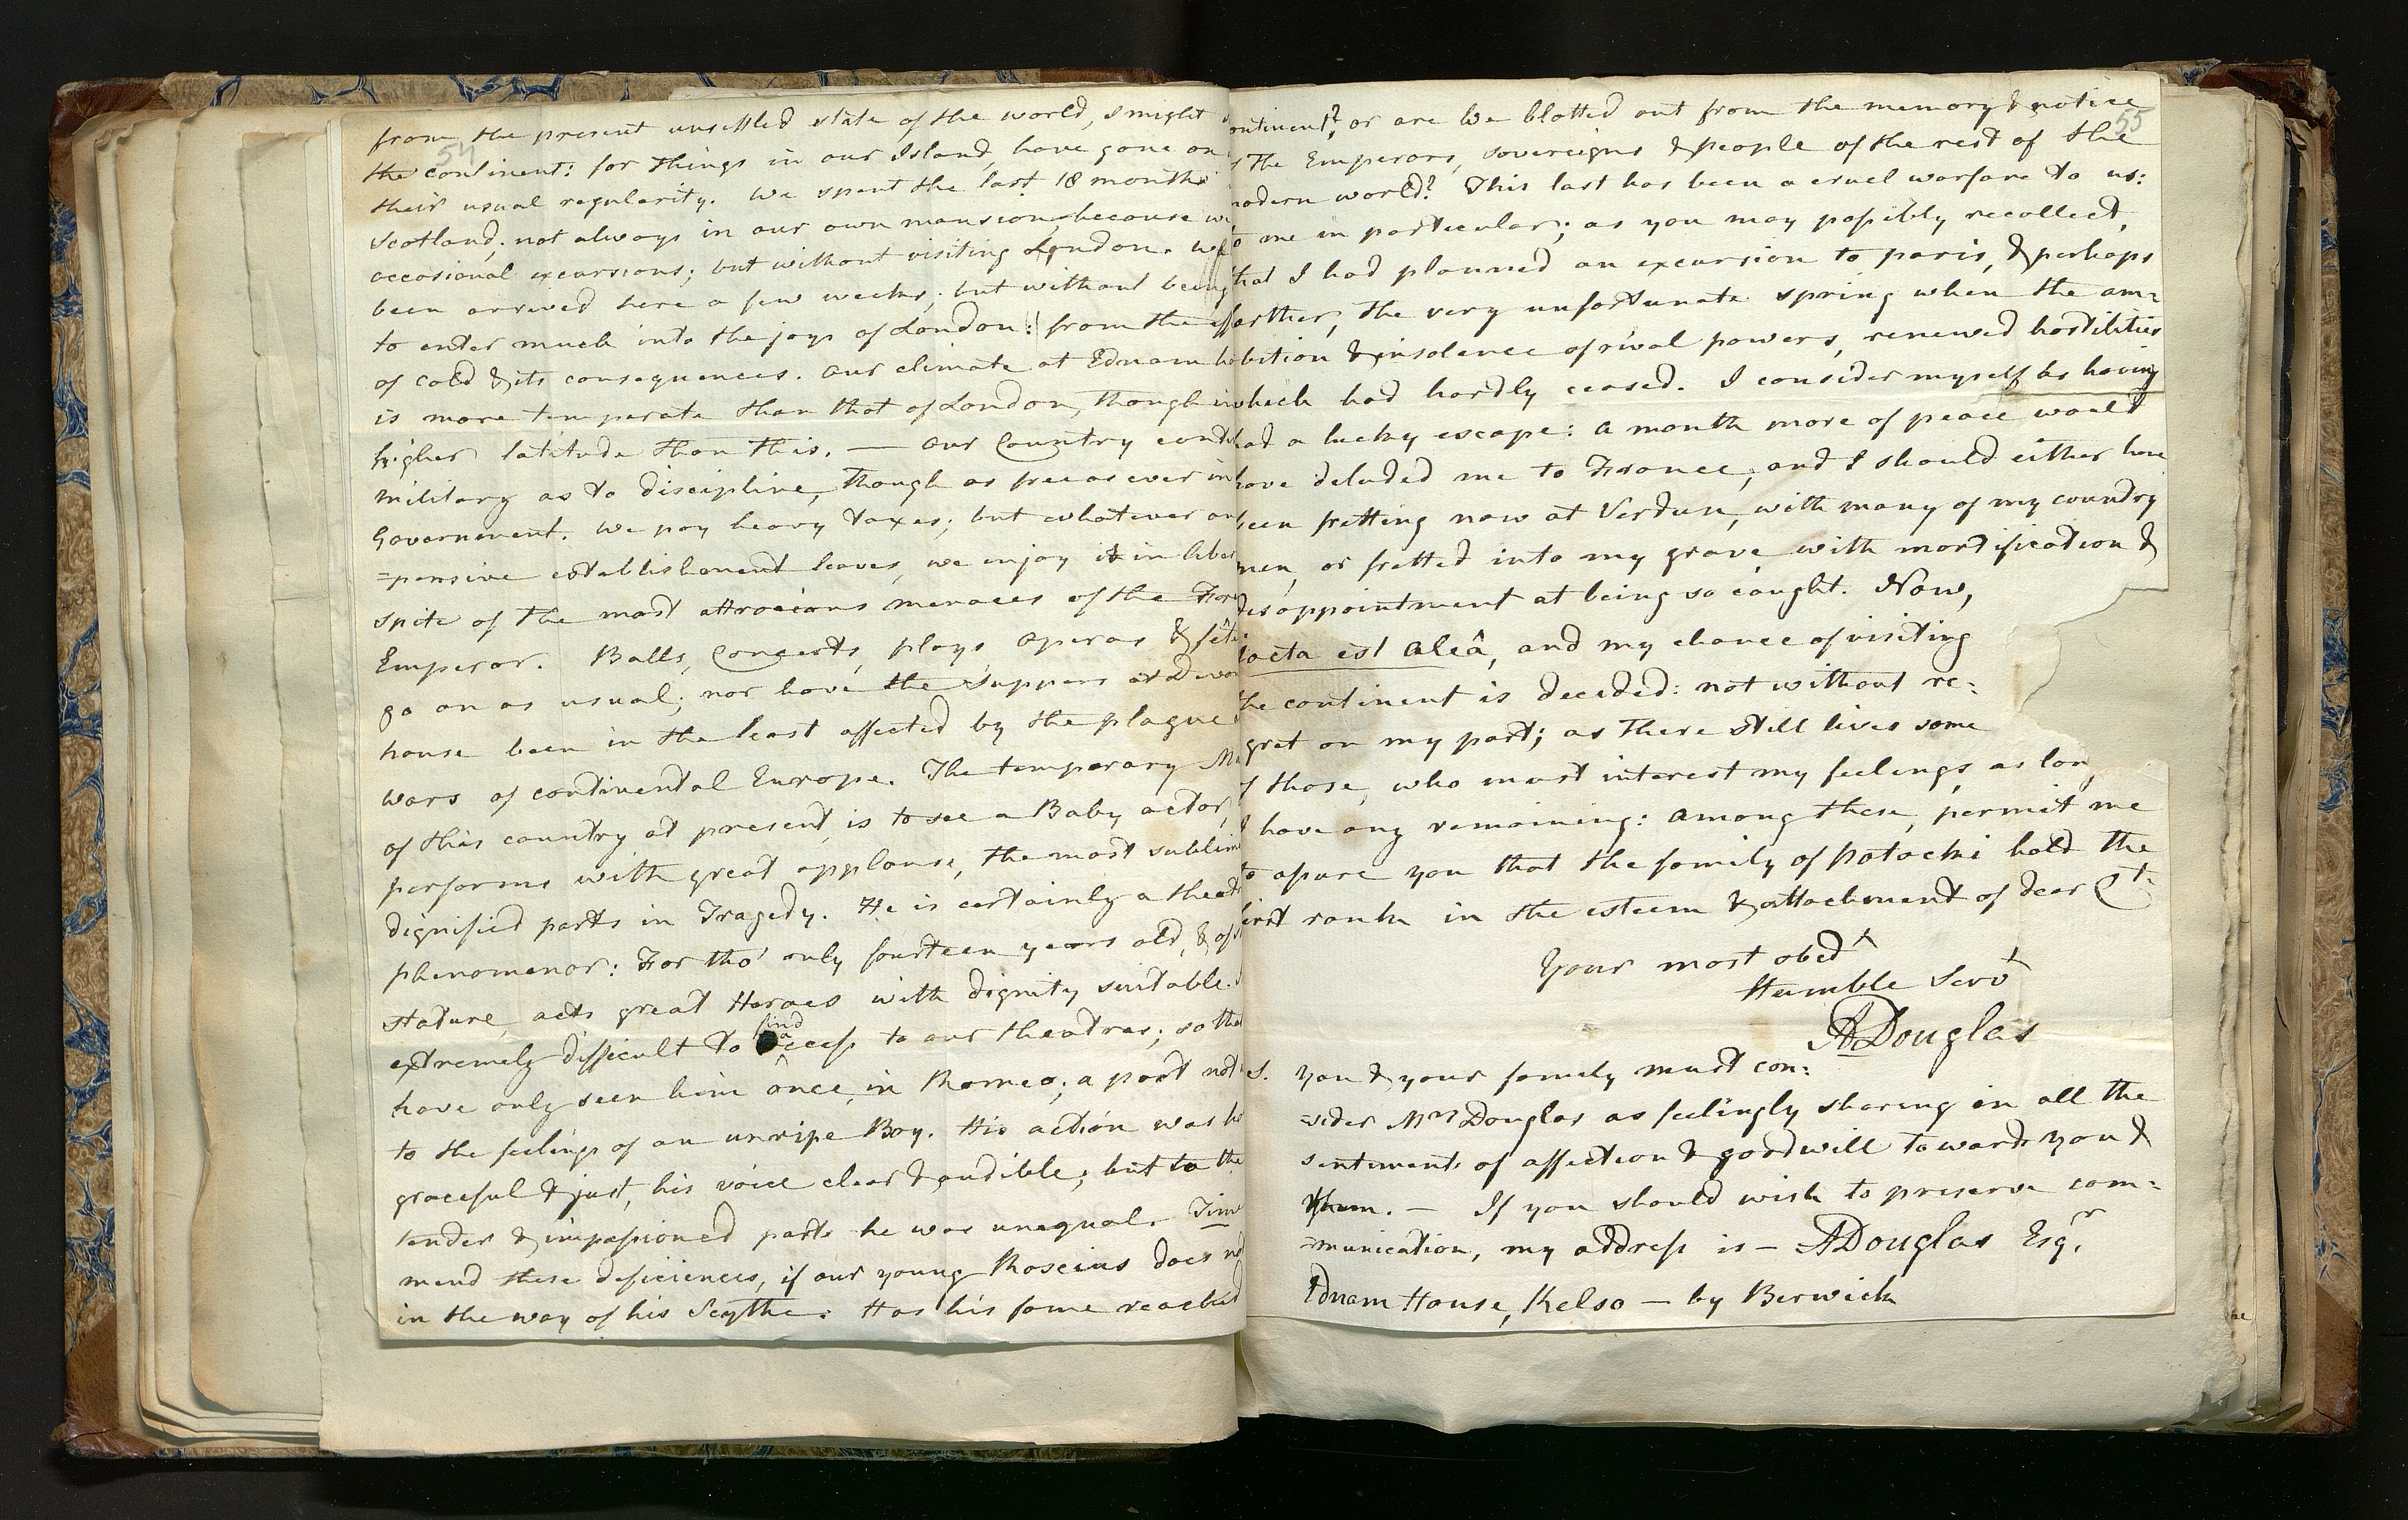 54
from the present unsettled state of the world, I might
the continent: for things in our Island, have gone on
their usual regularity. We spent the last 18 months
Scotland; not always in our own mansion, because we
occasional excursions; but without visiting London. We
been arrived here a few weeks; but without being
to enter much into the joys of London: from the eff
of cold & its consequences. Our climate at Ednam ho
is more temperate than that of London, though in
higher latitude than this. — Our Country cont
military as to discipline, though as free as ever in
Government. We pay heavy taxes; but whatever our
=pensive establishment leaves, we enjoy it in liber
spite of the most attrocious menaces of the Fre
Emperor. Balls, Concerts, plays, operas & fête
go on as usual; nor have the suppers at Devon
house been in the least affected by the plague
wars of continental Europe. The temporary Ma
of this country at present, is to see a Baby actor,
performs with great applause, the most sublime
dignified parts in Tragedy. He is certainly a theat
phenomenor: For tho' only fourteen years old, & of
stature, acts great Heroes with dignity suitable.
extremely difficult to find access to our theatres; so that
have only seen him once, in Romeo; a part not
to the feelings of an unripe Boy. His action was
graceful & just, his voice clear & audible; but to the
tender & impassioned parts he was unequal. Time
mend these deficiences, if our young Roscius does not
in the way of his Scythe. Has his fame reached
55
ontinent? or are We blotted out from the memory & notice
The Emperors, sovereigns & people of the rest of the
modern world? This last has been a cruel warfare to us:
to me in particular; as you may possibly recollect,
that I had planned an excursion to paris, & perhaps
farther, the very unfortunate spring when the am=
bition & insolence of rival powers, renewed hostilities
which had hardly ceased. I consider myself as having
had a lucky escape: a month more of peace would
have deluded me to France; and I should either have
been fretting now at Verdun, with many of my country
men, or fretted into my grave with mortification &
disappointment at being so caught. Now,
Jacta est aleâ, and my chance of visiting
the continent is decided: not without re=
gret on my part; as there still lives some
of those, who must interest my feelings, as long
I have any remaining: among these, permit me
to assure you that the family of Potocki hold the
first rank in the esteem & attachment of dear Ct.
Your most obedt
Humble Servt
ADouglas
S. you & your family must con=
=sider Mrs Douglas as feelingly sharing in all the
sentiments of affection & goodwill towards you &
them. — If you should wish to preserve com=
=munication, my address is — ADouglas Esqr.
Ednam House, Kelso — by Berwick